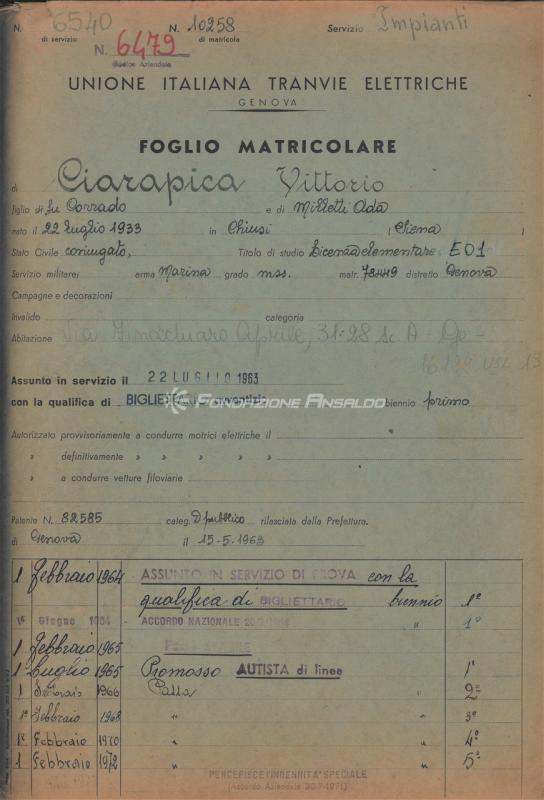 N. 6540 N. 10258 Servizio Impianti
di servizio di matricola
N. 6479
UNIONE ITALIANA TRANVIE ELETTRICHE
GENOVA
FOGLIO MATRICOLARE
di Ciarapica Vittorio
figlio di fu Corrado e di Milletti Ada
nato il 22 luglio 1933 in Chiusi (Siena)
Stato Civile coniugato, Titolo di studio Licenza elementare. E01
Servizio militare: arma Marina grado mss. matr. 78449 distretto Genova
Campagne e decorazioni
Invalido categoria
Abitazione Via Finocchiaro Aprile, 31-28 sc. A - Ge -
16129 USL 13
Assunto in servizio il 22 LUGLIO 1963
con la qualifica di BIGLIETTAIO avventizio biennio primo
FONDAZIONE ANSALDO
Autorizzato provvisoriamente a condurre motrici elettriche il
» definitivamente » » » »
» a condurre vetture filoviarie
Patente N. 82585 categ. D pubblico rilasciata dalla Prefettura.
di Genova il 15-5-1963
1 Febbraio 1964 ASSUNTO IN SERVIZIO DI PROVA con la
qualifica di BIGLIETTARIO biennio 1°
1° Giugno 1964 ACCORDO NAZIONALE " 1°
1 Febbraio 1965
1 Luglio 1965 Promosso AUTISTA di linea 1°
1 Febbraio 1966 Passa " 2°
1° Febbraio 1968 " " 3°
1° Febbraio 1970 " " 4°
1 Febbraio 1972 " " 5°
PERCEPISCE INDENNITA' SPECIALE
(Accordo Aziendale 30-7-1971)